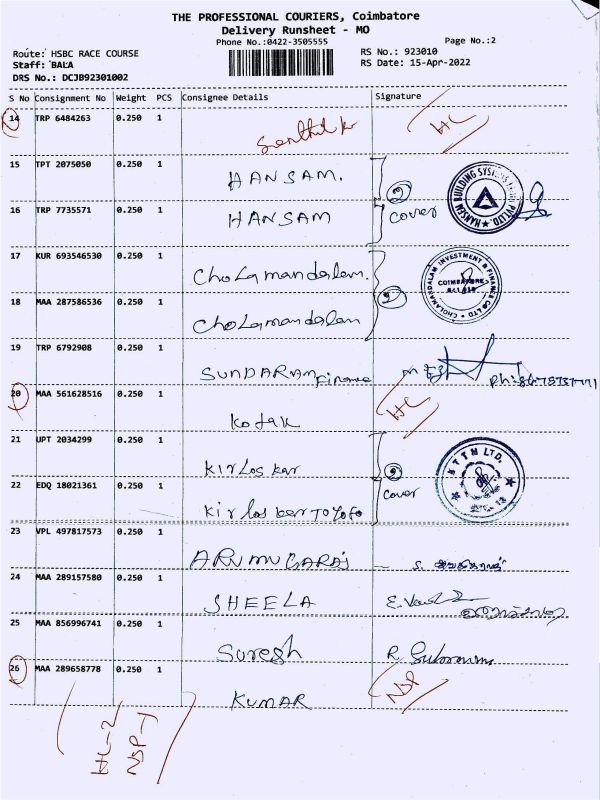 THE PROFESSIONAL COURIERS, Coimbatore
Delivery Runsheet - MO
Phone No.:0422-3505555
Page No.:2
Route: HSBC RACE COURSE
RS No.: 923010
Staff: BALA
RS Date: 15-Apr-2022
DRS No.: DCJB92301002
S No Consignment No Weight PCS Consignee Details Signature
14 TRP 6484263 0.250 1 Senthil kr HC
15 TPT 2075050 0.250 1 HANSAM.
16 TRP 7735571 0.250 1 HANSAM
② cover
HANSEM BUILDING SYSTEMS
17 KUR 693546530 0.250 1 Cholamandalam.
18 MAA 287586536 0.250 1 Cholamandalam
②
CHOLAMANDALAM INVESTMENT & FINANCE CO LTD
COIMBATORE
19 TRP 6792908 0.250 1 SUNDARAM Finance
20 MAA 561628516 0.250 1 Kotak HC
21 UPT 2034299 0.250 1 Kirloskar
22 EDQ 18021361 0.250 1 Kirloskar Toyoto
② cover
KTTM LTD.
23 VPL 497817573 0.250 1 ARUMUGARAJ
24 MAA 289157580 0.250 1 SHEELA
25 MAA 856996741 0.250 1 Suresh
26 MAA 289658778 0.250 1 KUMAR NSP
HC-2
NSP-1